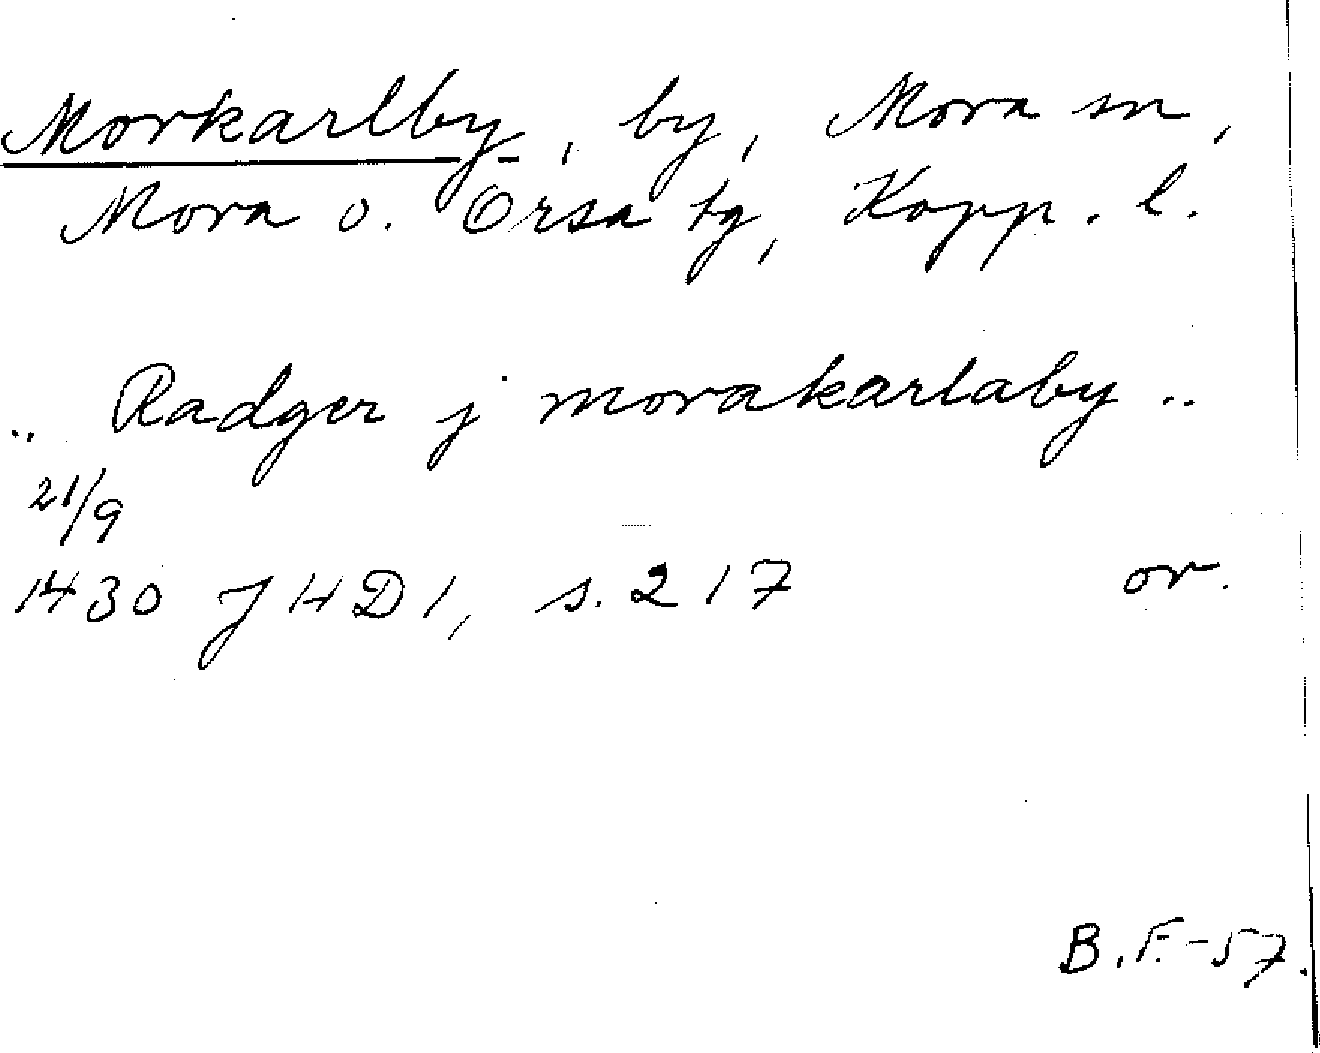 Morkarlby, by, Mora sn,
Mora o. Orsa tg, Kopp. l.
.. Radger j morakarlaby ..
21/9
1430 JHD1, s. 217 or.
B.F.-57.